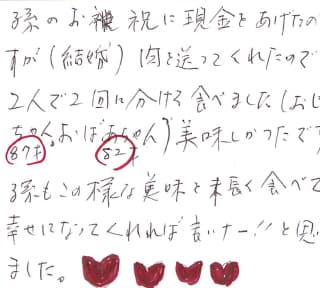 孫のお祝に現金をあげたの
すが(結婚)肉を送ってくれたので
2人で2回に分けて食べました(おじ
ちゃん。おばあちゃん)美味しかったです
87才 82才
孫もこの様な美味を末長く食べて
幸せになってくれれば良いナー!!と思い
ました。